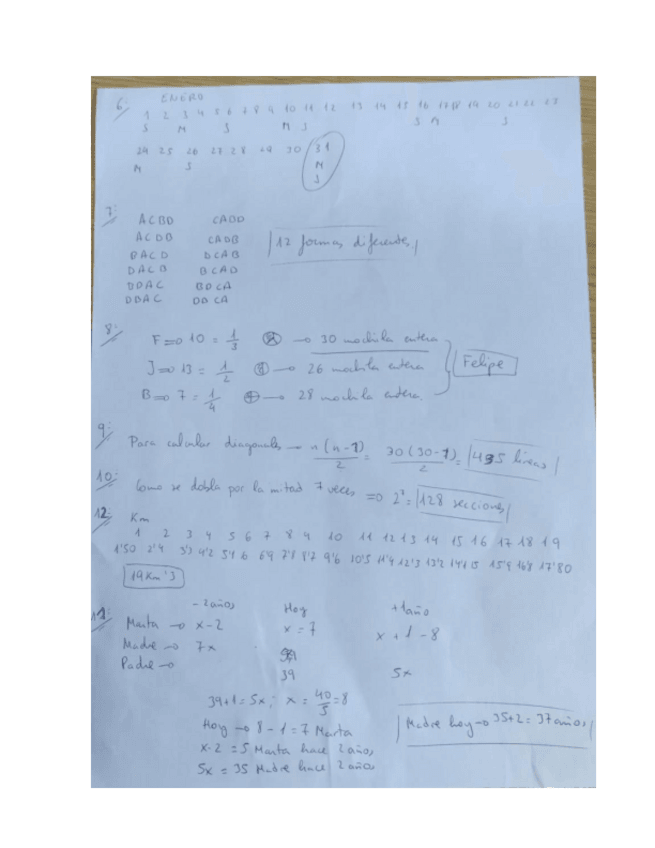 6: ENERO
1 2 3 4 5 6 7 8 9 10 11 12 13 14 15 16 17 18 19 20 21 22 23
S M S M S S M S
24 25 26 27 28 29 30 31
M S M
S
7:
ACBD CABD
ACDB CADB
BACD DCAB
DACB BCAD
BDAC BDCA
DBAC DBCA
12 formas diferentes
8:
F => 10 = 1/3 → 30 mochila entera
J => 13 = 1/2 → 26 mochila entera
B => 7 = 1/4 → 28 mochila entera.
Felipe
9:
Para calcular diagonales → n(n-1)/2 = 30(30-1)/2 = 435 líneas
10:
Como se dobla por la mitad 7 veces => 2⁷ = 128 secciones
12: Km
1 2 3 4 5 6 7 8 9 10 11 12 13 14 15 16 17 18 19
1'50 2'4 3'3 4'2 5'1 6 6'9 7'8 8'7 9'6 10'5 11'4 12'3 13'2 14'1 15 15'9 16'8 17'80
19Km'3
11:
-2años Hoy +1año
Marta → x-2 x=7 x+1-8
Madre → 7x
Padre → 39 5x
39+1=5x; x = 40/5 = 8
Hoy → 8-1=7 Marta
x-2 = 5 Marta hace 2 años
5x = 35 Madre hace 2 años
Madre hoy → 35+2 = 37 años